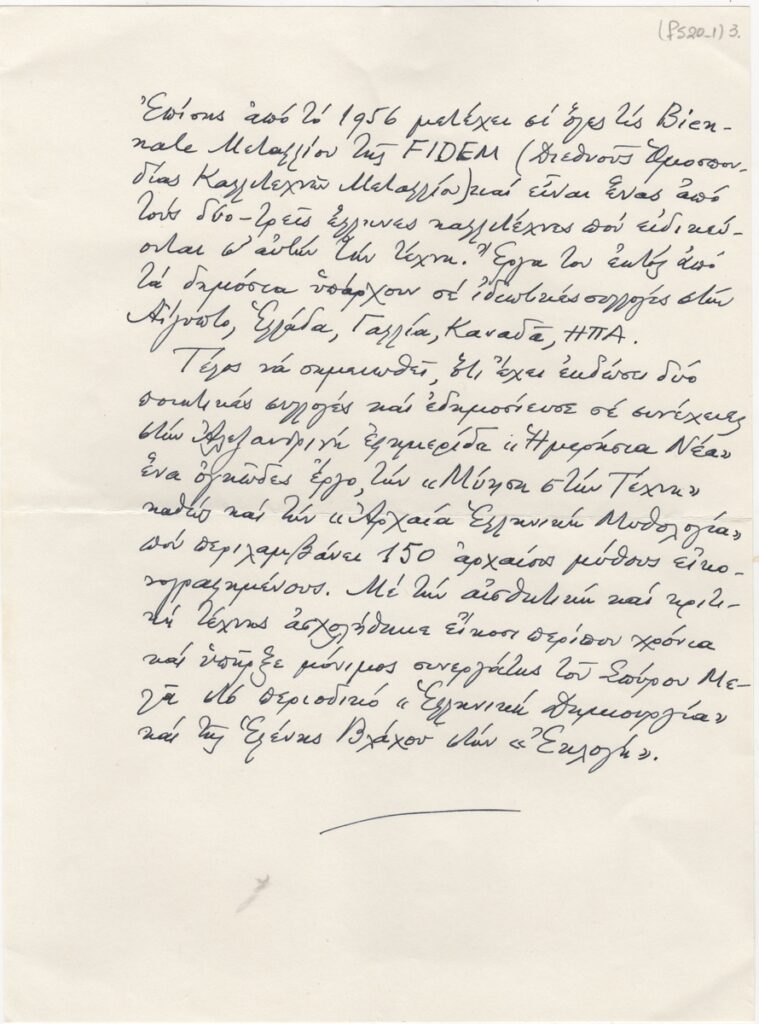 (f520-1) 3.
Ἐπίσης ἀπό τό 1956 μετέχει σέ ὅλες τίς Bien-
nale Μεταλλίου τῆς FIDEM (Διεθνοῦς Ὁμοσπον-
δίας Καλλιτεχνῶν Μεταλλίου) καί εἶναι ἕνας ἀπό
τούς δύο-τρεῖς ἕλληνες καλλιτέχνες πού εἰδικεύ-
ονται σ' αὐτήν τήν τέχνη. Ἔργα του ἐκτός ἀπό
τά δημόσια ὑπάρχουν σέ ἰδιωτικές συλλογές στήν
Αἴγυπτο, Ἑλλάδα, Γαλλία, Καναδᾶ, ΗΠΑ.
Τέλος νά σημειωθεῖ, ὅτι ἔχει ἐκδώσει δύο
ποιητικές συλλογές καί ἐδημοσίευσε σέ συνέχειες
στήν Ἀλεξανδρινή ἐφημερίδα «Ἡμερήσια Νέα»
ἕνα ὀγκῶδες ἔργο, τήν «Μύηση στήν Τέχνη»
καθώς καί τήν «Ἀρχαία Ἑλληνική Μυθολογία»
πού περιλαμβάνει 150 ἀρχαίους μύθους εἰκο-
νογραφημένους. Μέ τήν αἰσθητική καί κριτι-
κή τέχνης ἀσχολήθηκε εἴκοσι περίπου χρόνια
καί ὑπῆρξε μόνιμος συνεργάτης τοῦ Σπύρου Με-
λᾶ στό περιοδικό «Ἑλληνική Δημιουργία»
καί τῆς Ἑλένης Βλάχου στήν «Ἐκλογή».